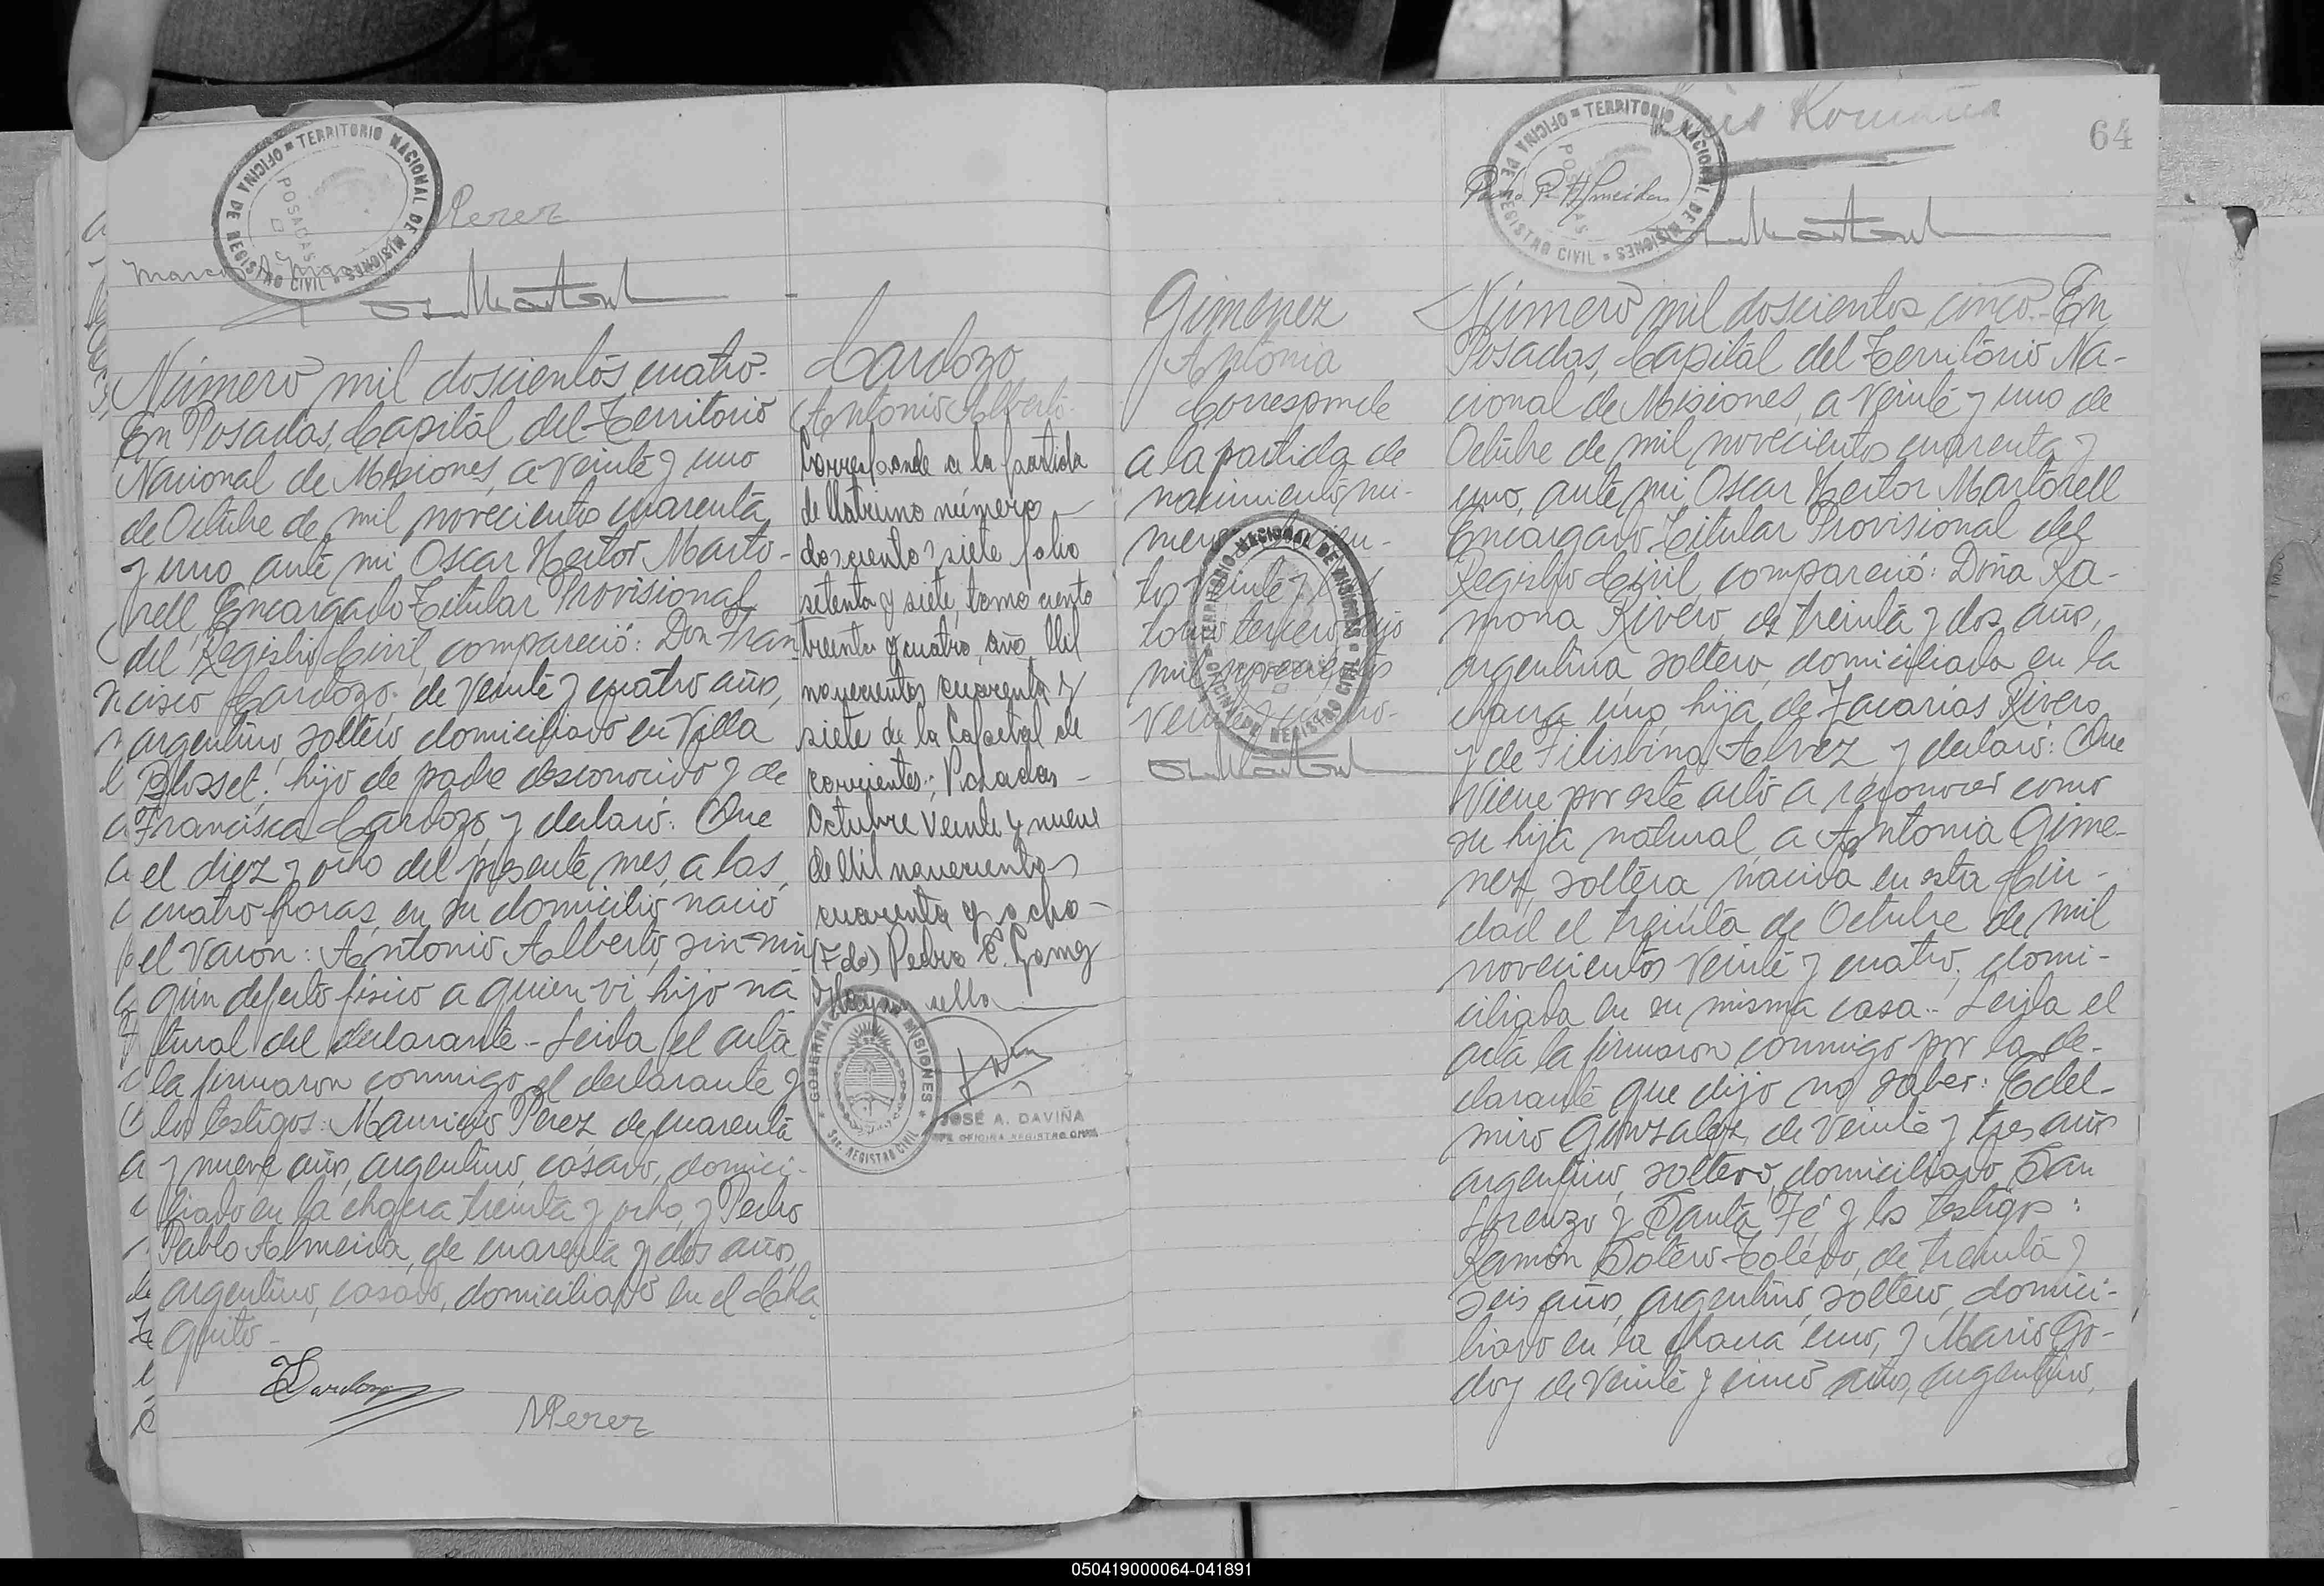 OFICINA DE REGISTRO CIVIL = TERRITORIO NACIONAL DE MISIONES =
POSADAS
Perez
Número mil doscientos cuatro.-
En Posadas, Capital del Territorio
Nacional de Misiones, a veinte y uno
de Octubre de mil novecientos cuarenta
y uno, ante mi Oscar Hector Marto-
rell Encargado Titular Provisional
del Registro Civil, compareció: Don Fran
cisco Cardozo, de veinte y cuatro años,
argentino, soltero domiciliado en Villa
Blosset, hijo de padre desconocido y de
Francisca Cardozo y declaró: Que
el diez y ocho del presente mes, a las
cuatro horas, en su domicilio nació
el varón: Antonio Alberto, sin nin
gún defecto físico a quien vi, hijo na
tural del declarante.- Leida el acta
la firmaron conmigo el declarante y
los testigos: Mauricio Perez de cuarenta
y nueve años, argentino, casado, domici-
liado en la chacra treinta y ocho, y Pedro
Pablo Almeida, de cuarenta y dos años,
argentino, casado, domiciliado en el Cha
quito-
Cardozo
MPerez
Cardozo
Antonio Alberto.
Corresponde a la partida
de Matrimo número
doscientos siete folio
setenta y siete, tomo ciento
treinta y cuatro, año Mil
novecientos cuarenta y
siete de la Capital de
corrientes; Posadas
Octubre veinte y nueve
de Mil novecientos
cuarenta y ocho-
(Fdo) Pedro E. Gomez
Hay un sello
GOBERNACION MISIONES
REGISTRO CIVIL
JOSÉ A. DAVIÑA
JEFE OFICINA REGISTRO CIVIL
Gimenez
Antonia
Corresponde
a la partida de
nacimiento nú-
mero
tos veinte y
tomo tercero año
mil novecientos
veinte y cuatro.-
TERRITORIO NACIONAL DE MISIONES = OFICINA DE REGISTRO CIVIL =
64
Luis Romaña
Pedro P. Almeida
OFICINA DE REGISTRO CIVIL = TERRITORIO NACIONAL DE MISIONES =
POSADAS
Número mil doscientos cinco.- En
Posadas, Capital del Territorio Na-
cional de Misiones, a veinte y uno de
Octubre de mil novecientos cuarenta y
uno, ante mi Oscar Hector Martorell
Encargado Titular Provisional del
Registro Civil, compareció: Doña Ra-
mona Rivero, de treinta y dos años,
argentina, soltera, domiciliada en la
chacra uno, hija de Zacarias Rivero
y de Filisbina Alvez y declaró: Que
viene por este acto a reconocer como
su hija natural a Antonia Gime-
nez, soltera, nacida en esta Ciu-
dad el treinta de Octubre de mil
novecientos veinte y cuatro, domi-
ciliada en su misma casa.- Leida el
acta la firmaron conmigo por la de-
clarante que dijo no saber: Edel-
miro Gonzalez, de veinte y tres años
argentino, soltero, domiciliado San
Lorenzo y Santa Fé y los testigos:
Ramón Sotero Toledo, de treinta y
seis años, argentino, soltero, domici-
liado en la chacra uno, y Mario Go-
doy de veinte y cinco años, argentino,
050419000064-041891